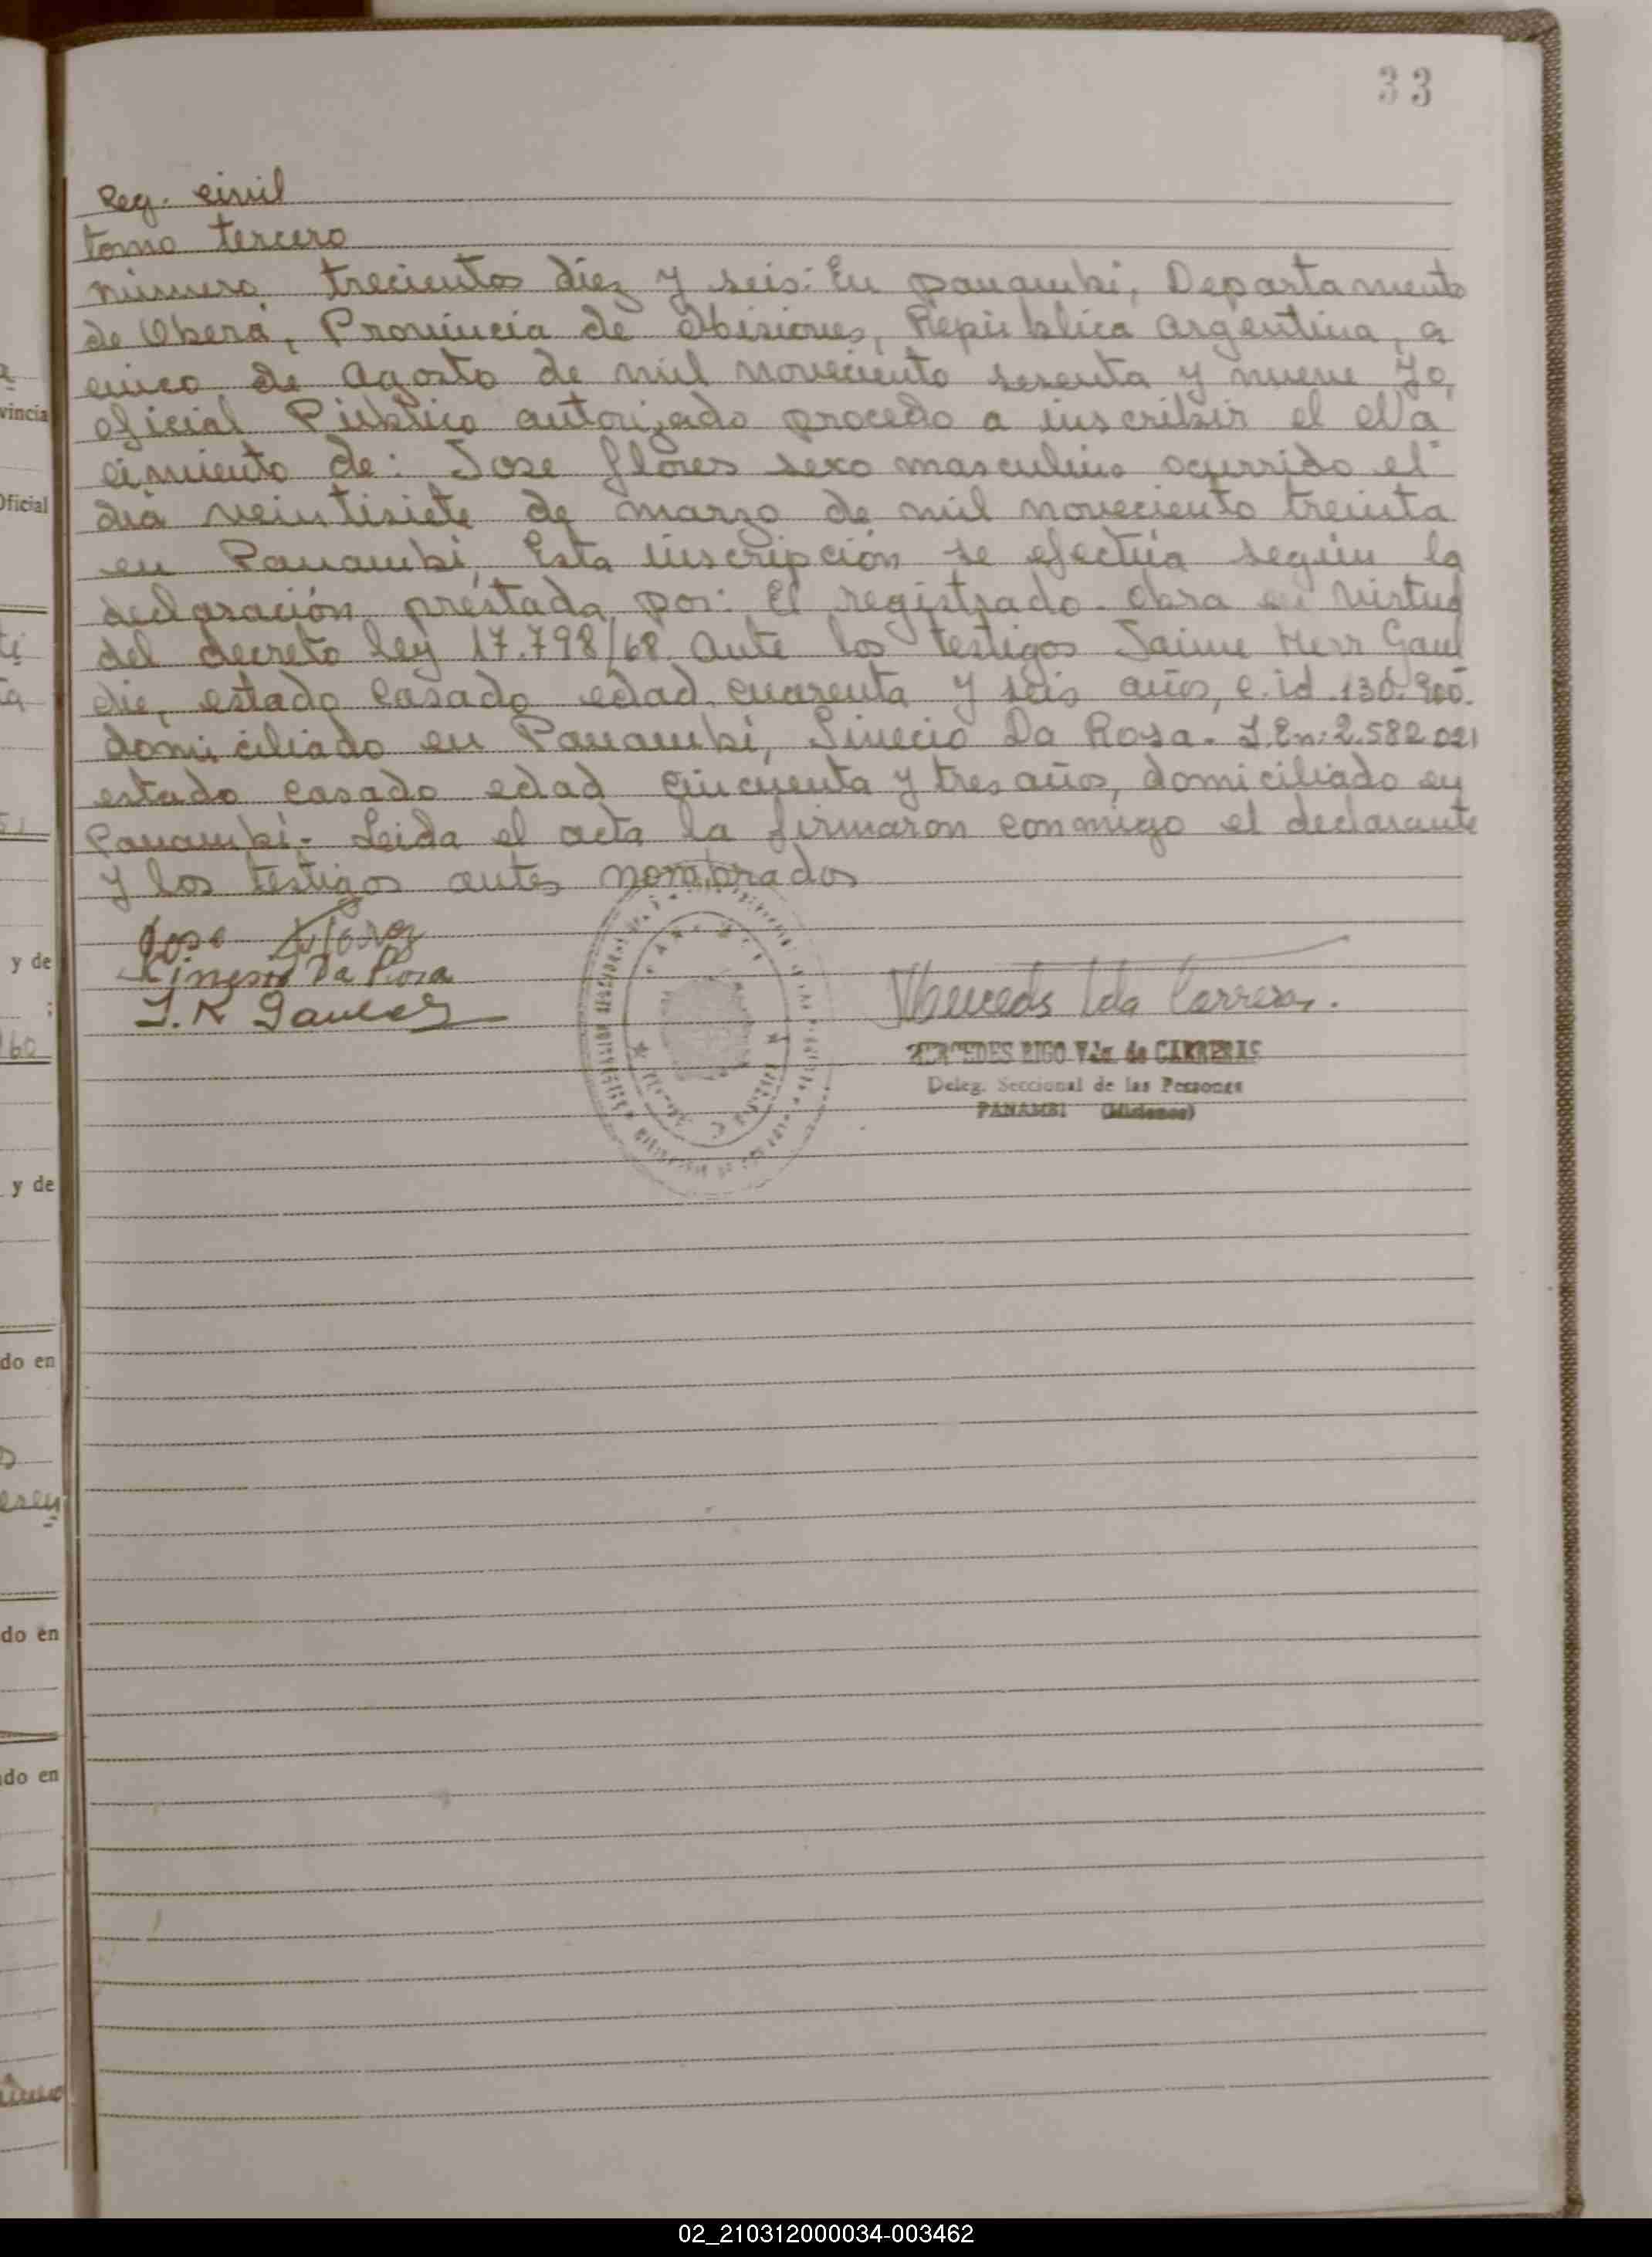 33
Reg. civil
tomo tercero
número trecientos diez y seis: En panambi, Departamento
de Oberá, Provincia de Misiones, República argentina, a
cinco de Agosto de mil noveciento sesenta y nueve Yo,
oficial Público autorizado procedo a inscribir el Na
cimiento de: Jose flores sexo masculino ocurrido el
dia veintisiete de marzo de mil noveciento treinta
en Panambi, Esta inscripción se efectúa según la
declaración prestada por: El registrado. obra en virtud
del decreto ley 17.798/68. Ante los testigos Jaime Herr Gau
die, estado casado edad cuarenta y seis años, c. id 130.900.
domiciliado en Panambi, Sinecio Da Rosa. L.En: 2.582.021
estado casado edad cincuenta y tres años, domiciliado en
Panambi. Leida el acta la firmaron conmigo el declarante
y los testigos antes nombrados
Jose Flores
Sinesio Da Rosa
MERCEDES RIGO Vda. de CARRERAS
Deleg. Seccional de las Personas
PANAMBI (Misiones)
vincia
Oficial
y de
y de
do en
do en
do en
02_210312000034-003462